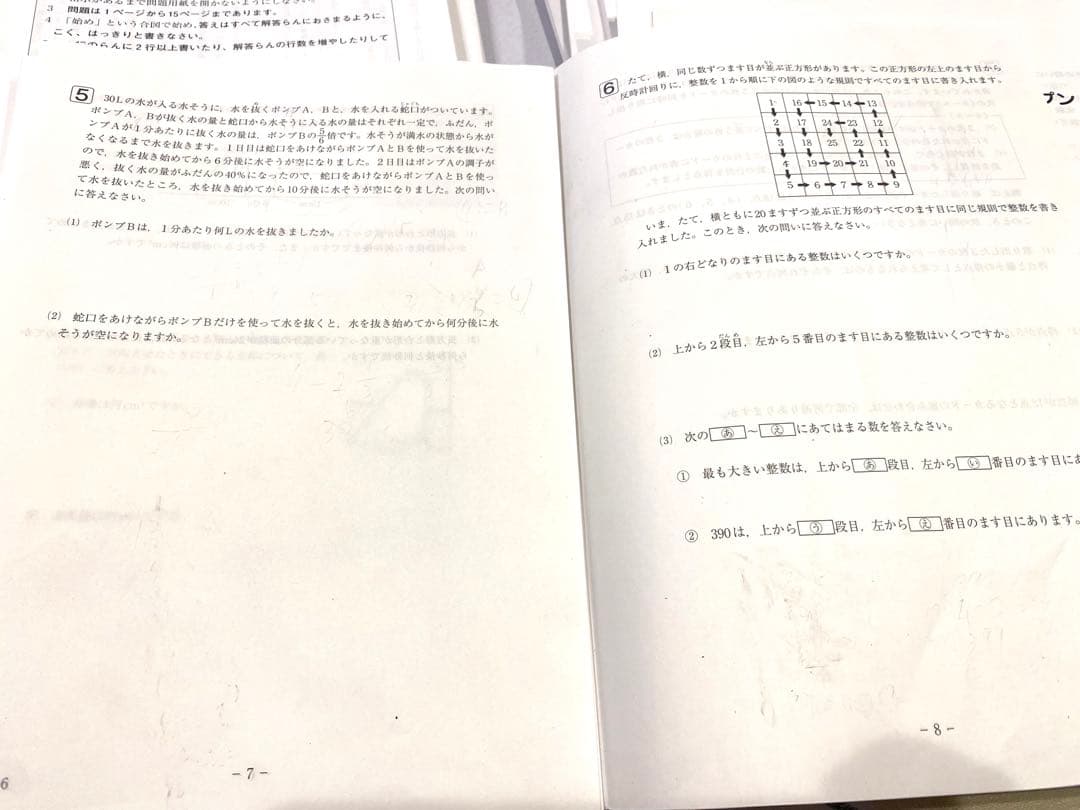 3 問題は1ページから15ページまであります。
4 「始め」という合図で始め，答えはすべて解答らんにおさまるように，
こく，はっきりと書きなさい。
のらんに2行以上書いたり，解答らんの行数を増やしたりして
5 30Lの水が入る水そうに，水を抜くポンプA，Bと，水を入れる蛇口がついています。
ポンプA，Bが抜く水の量と蛇口から水そうに入る水の量はそれぞれ一定で，ふだん，ポ
ンプAが1分あたりに抜く水の量は，ポンプBの5/6倍です。水そうが満水の状態から水が
なくなるまで水を抜きます。1日目は蛇口をあけながらポンプAとBを使って水を抜いた
ので，水を抜き始めてから6分後に水そうが空になりました。2日目はポンプAの調子が
悪く，抜く水の量がふだんの40%になったので，蛇口をあけながらポンプAとBを使っ
て水を抜いたところ，水を抜き始めてから10分後に水そうが空になりました。次の問い
に答えなさい。
(1) ポンプBは，1分あたり何Lの水を抜きましたか。
(2) 蛇口をあけながらポンプBだけを使って水を抜くと，水を抜き始めてから何分後に水
そうが空になりますか。
- 7 -
6
6 たて，横，同じ数ずつます目が並ぶ正方形があります。この正方形の左上のます目から
反時計回りに，整数を1から順に下の図のような規則ですべてのます目に書き入れます。
1 16 ← 15 ← 14 ← 13
2 17 24 ← 23 12
3 18 25 22 11
4 19 → 20 → 21 10
5 → 6 → 7 → 8 → 9
プン
いま，たて，横ともに20ますずつ並ぶ正方形のすべてのます目に同じ規則で整数を書き
入れました。このとき，次の問いに答えなさい。
(1) 1の右どなりのます目にある整数はいくつですか。
(2) 上から2段目，左から5番目のます目にある整数はいくつですか。
(3) 次の あ ～ え にあてはまる数を答えなさい。
① 最も大きい整数は，上から あ 段目，左から い 番目のます目にあ
② 390は，上から う 段目，左から え 番目のます目にあります。
- 8 -